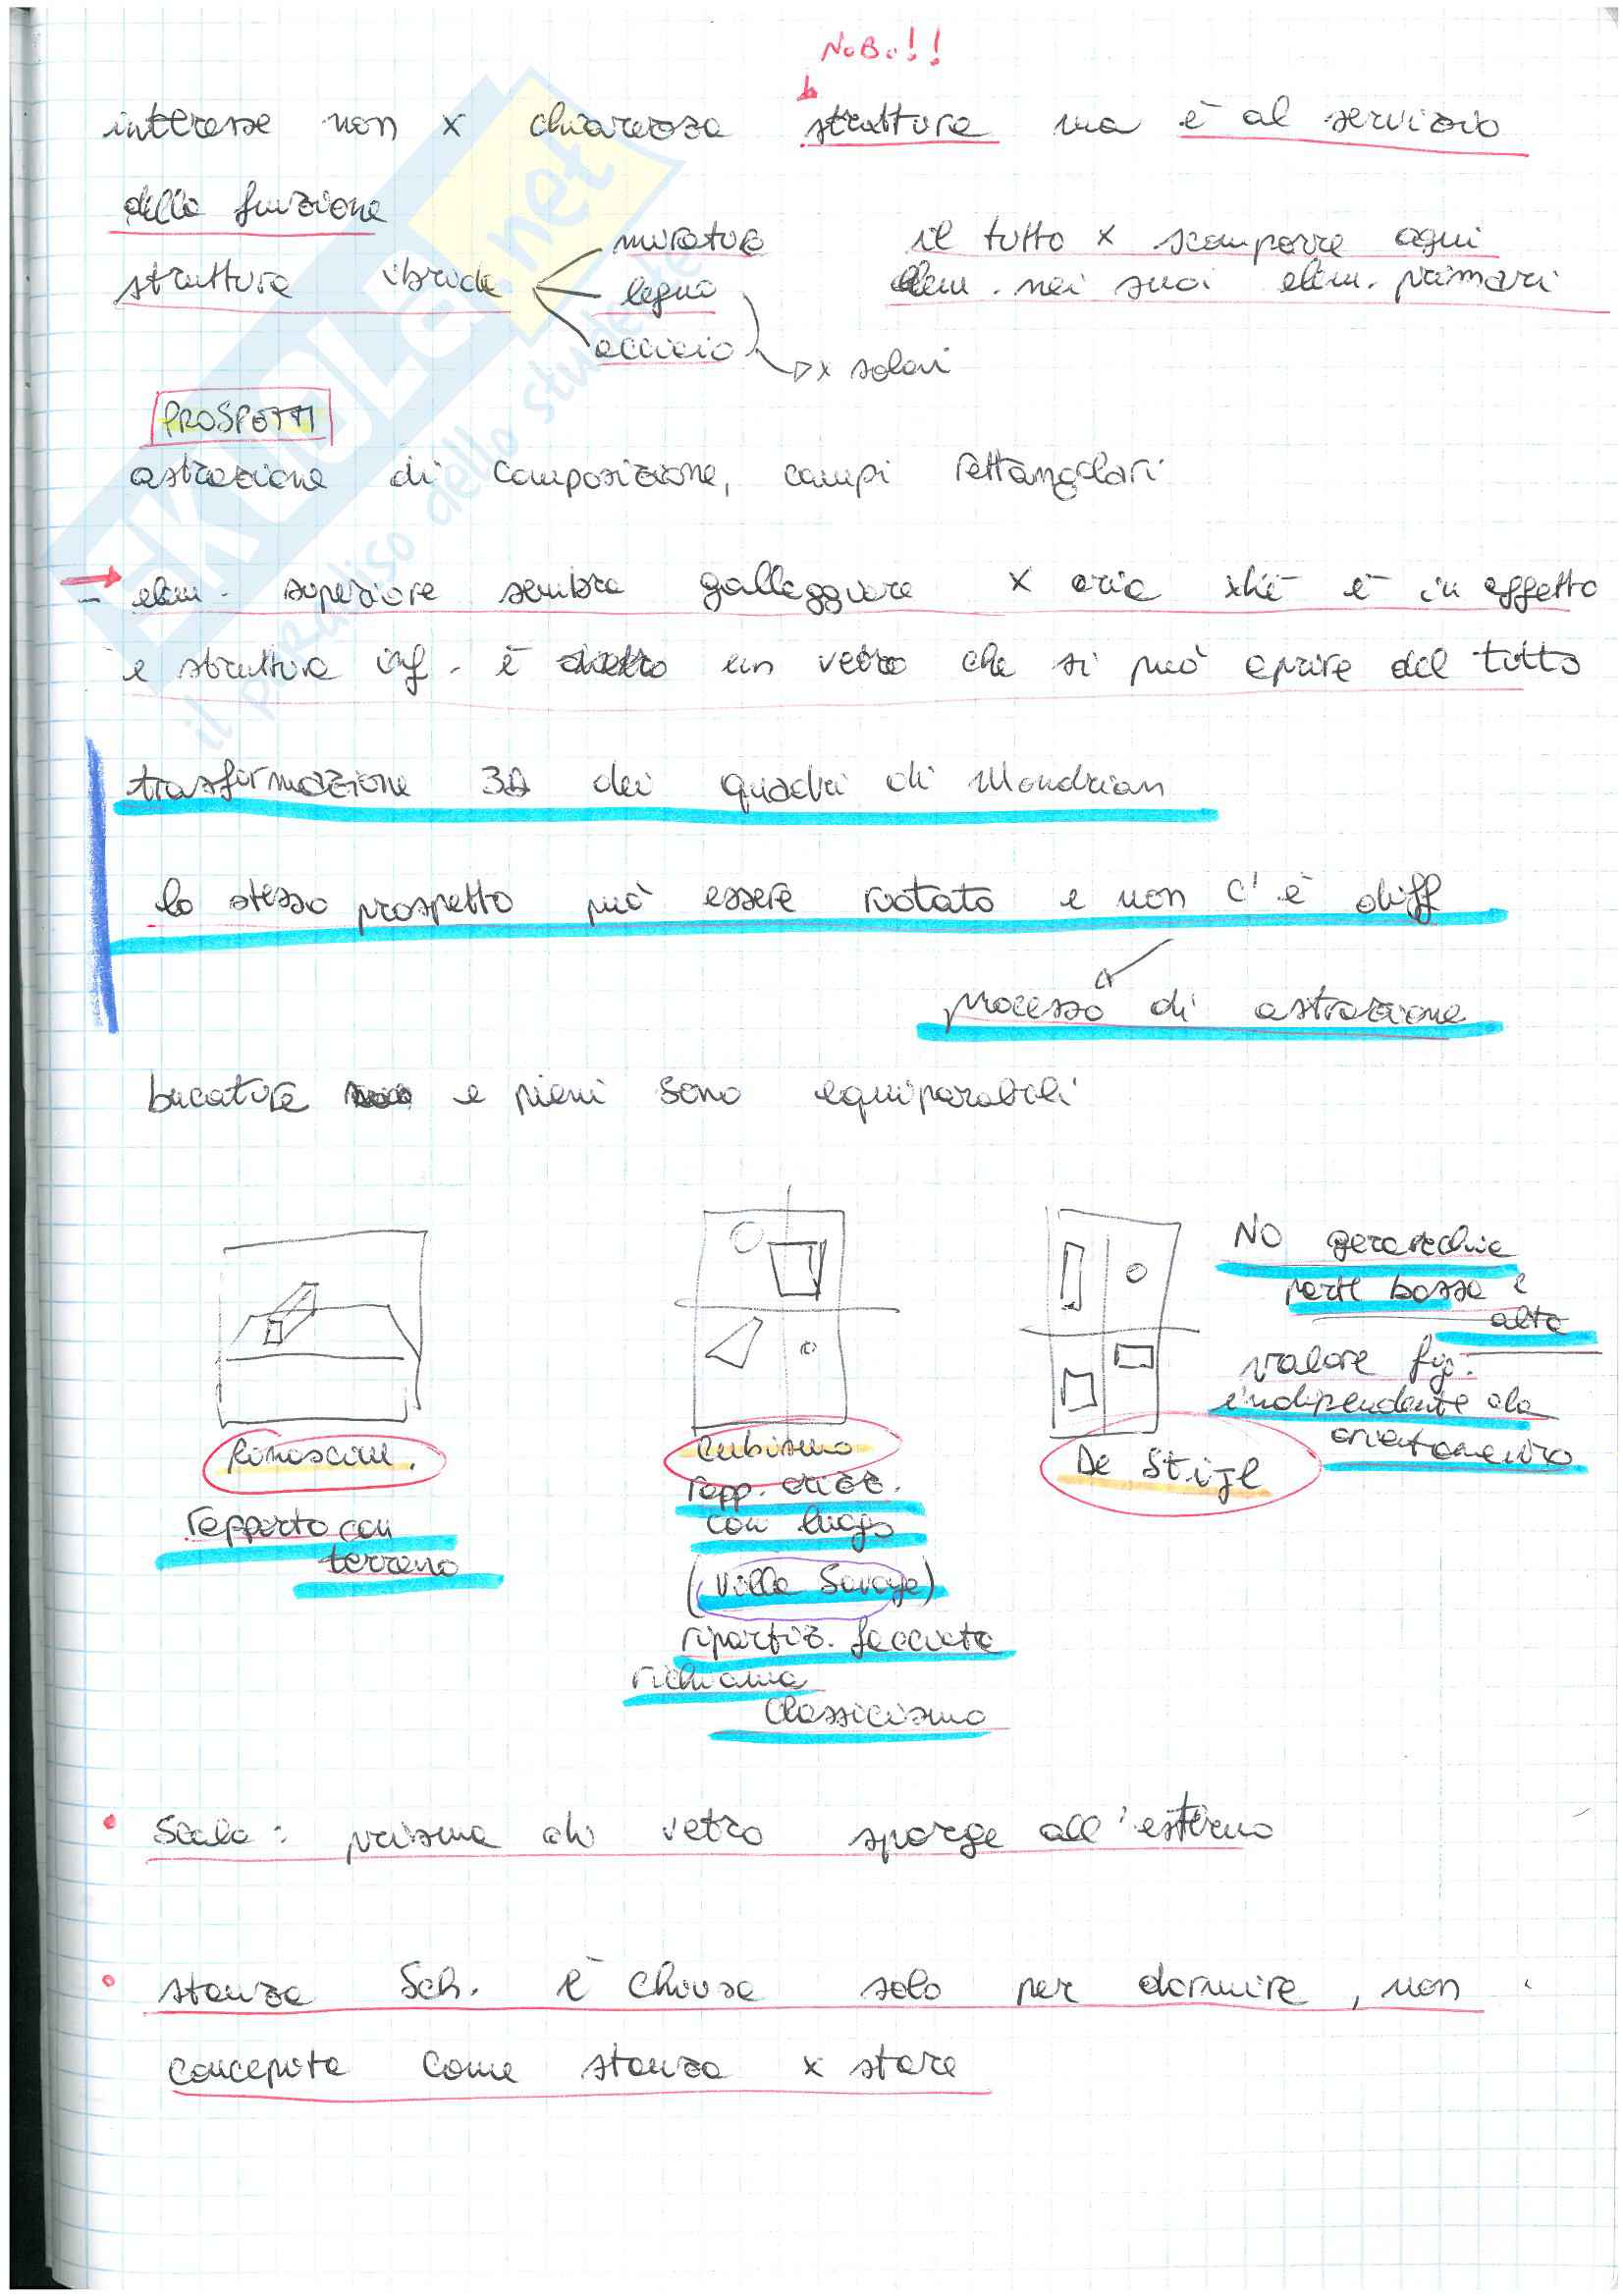 N.B.!!
interesse non x chiarezza struttura ma è al servizio
della funzione
struttura ibrida
muratura
legno
acciaio
x solai
il tutto x scomporre ogni
elem. nei suoi elem. primari
PROSPETTI
astrazione di composizione, campi rettangolari
- elem. superiore sembra galleggiare x aria xkè è in aggetto
e struttura inf. è un vetro che si può aprire del tutto
trasformazione 3D dei quadri di Mondrian
lo stesso prospetto può essere ruotato e non c'è diff
processo di astrazione
bucature e pieni sono equiparabili
Rinascim.
rapporto con
terreno
Cubismo
rapp. orizz.
con luogo
(Ville Savoye)
ripartiz. facciata
richiama
Classicismo
De Stijl
NO gerarchie
parte bassa e
alta
valore fig.
indipendente da
orientamento
EKOLA.net
il paradiso dello studente
• Scala: prisma di vetro sporge all'esterno
• stanza Sch. è chiusa solo per dormire, non
concepita come stanza x stare